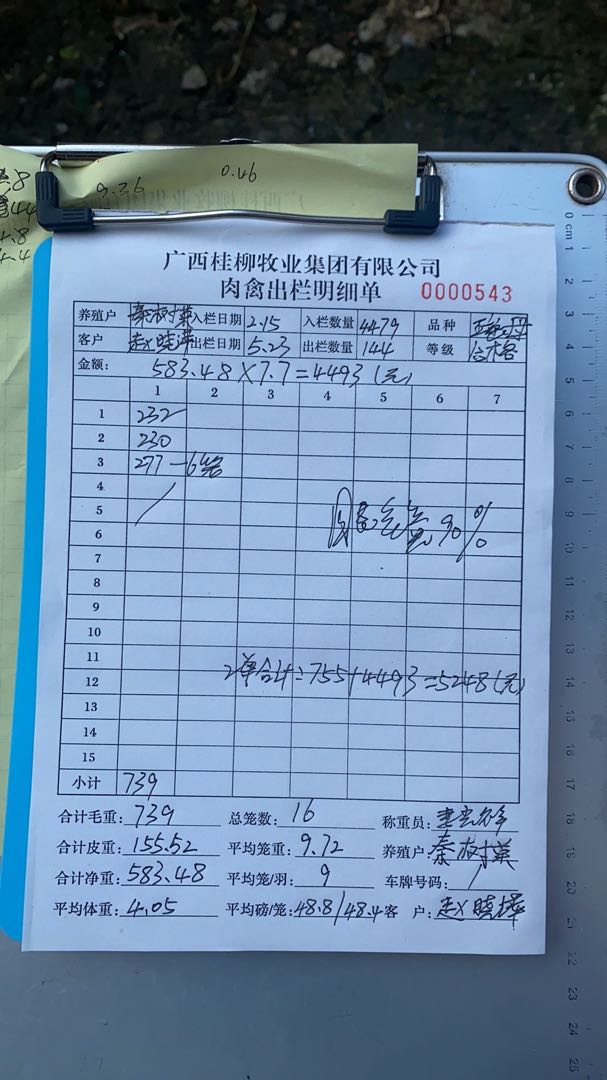 9.26
0.46
.8
44
.8
4.4
广西桂柳牧业集团有限公司
肉禽出栏明细单 0000543
养殖户 秦树英 入栏日期 2.15 入栏数量 4479 品种
客户 赵晓萍 出栏日期 5.23 出栏数量 144 等级 合格
金额: 583.48×7.7=4493(元)
1 2 3 4 5 6 7
1 232
2 230
3 277-6笼
4
5
6 90%
7
8
9
10
11
12 2单合计:755+4493=5248(元)
13
14
15
小计 739
合计毛重: 739 总笼数: 16 称重员:
合计皮重: 155.52 平均笼重: 9.72 养殖户: 秦树英
合计净重: 583.48 平均笼/羽: 9 车牌号码: /
平均体重: 4.05 平均磅/笼: 48.8/48.4 客 户: 赵晓萍
0 cm 1 2 3 4 5 6 7 8 9 10 11 12 13 14 15 16 17 18 19 20 21 22 23 24 25